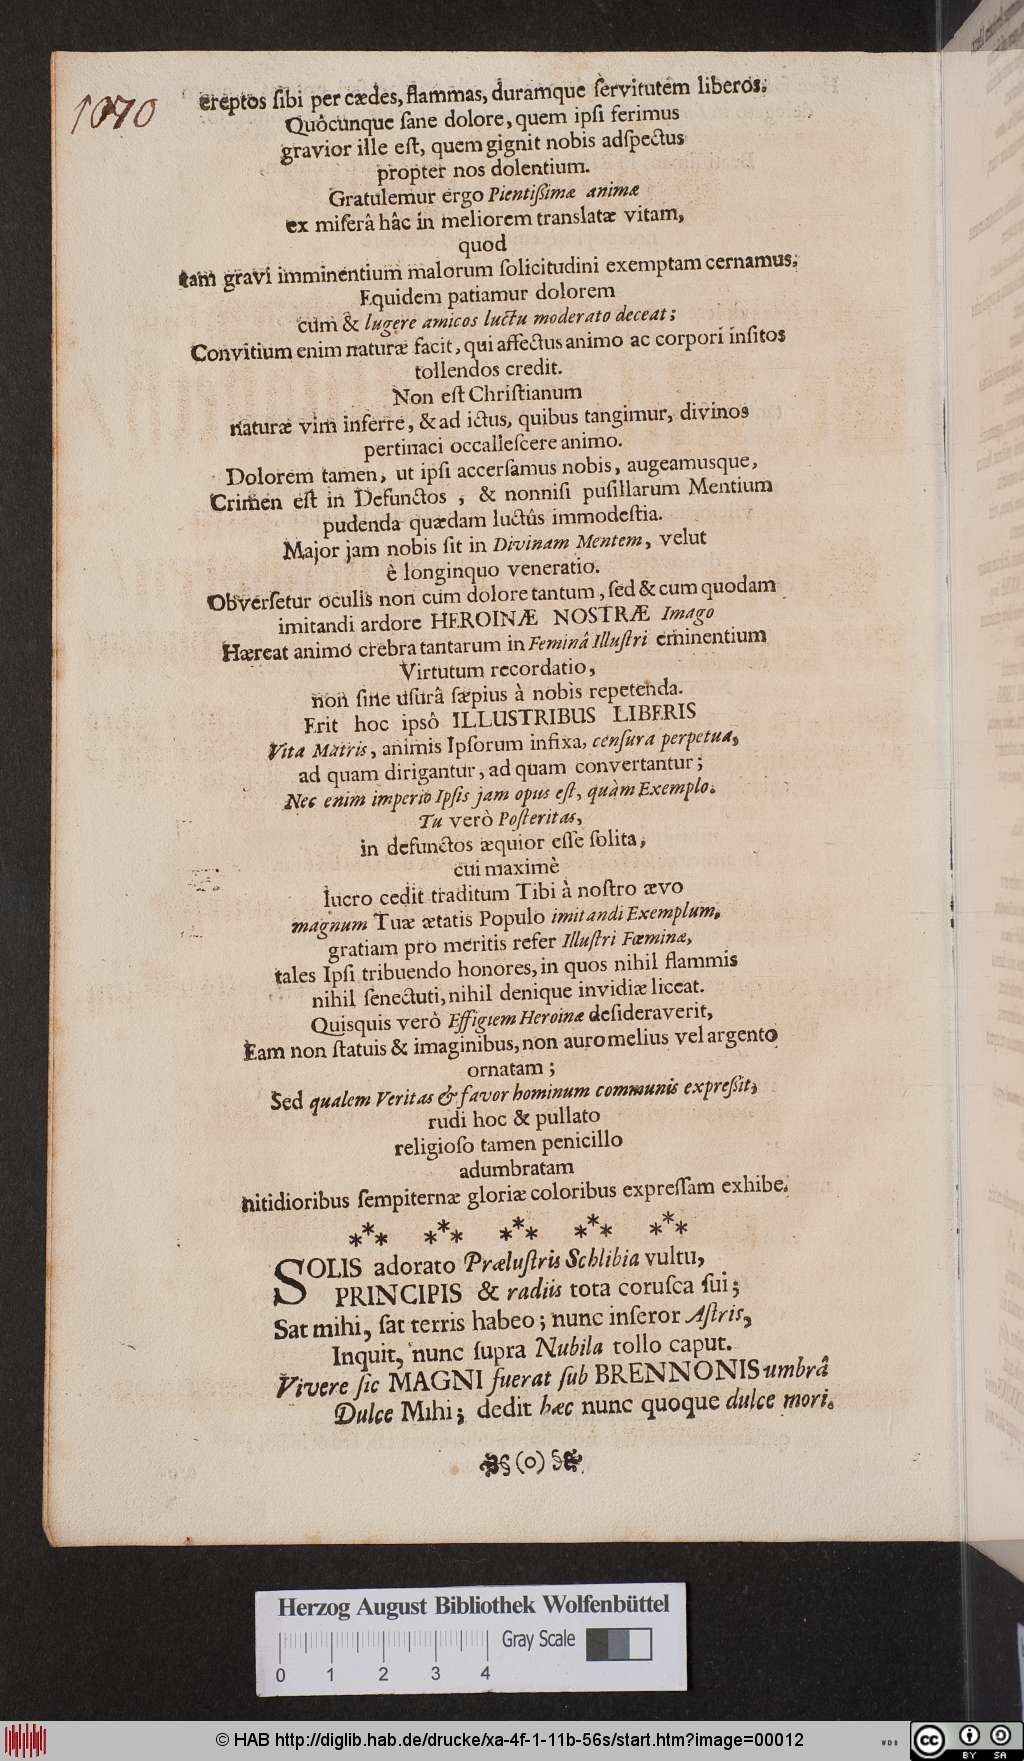 1070
ereptos ſibi per cædes, flammas, duramque ſervitutem liberos.
Quôcunque ſane dolore, quem ipſi ferimus
gravior ille eſt, quem gignit nobis adſpectus
propter nos dolentium.
Gratulemur ergo Pientißimæ animæ
ex miſerâ hâc in meliorem translatæ vitam,
quod
tam gravi imminentium malorum ſolicitudini exemptam cernamus.
Equidem patiamur dolorem
cum & lugere amicos luctu moderato deceat;
Convitium enim naturæ facit, qui affectus animo ac corpori inſitos
tollendos credit.
Non eſt Chriſtianum
naturæ vim inferre, & ad ictus, quibus tangimur, divinos
pertinaci occalleſcere animo.
Dolorem tamen, ut ipſi accerſamus nobis, augeamusque,
Crimen eſt in Defunctos, & nonniſi puſillarum Mentium
pudenda quædam luctûs immodeſtia.
Major jam nobis ſit in Divinam Mentem, velut
è longinquo veneratio.
Obverſetur oculis non cum dolore tantum, ſed & cum quodam
imitandi ardore HEROINÆ NOSTRÆ Imago
Hæreat animo crebra tantarum in Feminâ Illuſtri eminentium
Virtutum recordatio,
non ſine uſurâ ſæpius à nobis repetenda.
Erit hoc ipsô ILLUSTRIBUS LIBERIS
Vita Matris, animis Ipſorum infixa, cenſura perpetua,
ad quam dirigantur, ad quam convertantur;
Nec enim imperio Ipſis jam opus eſt, quàm Exemplo.
Tu verò Poſteritas,
in defunctos æquior eſſe ſolita,
cui maximè
lucro cedit traditum Tibi à noſtro ævo
magnum Tuæ ætatis Populo imitandi Exemplum,
gratiam pro meritis refer Illuſtri Fœminæ,
tales Ipſi tribuendo honores, in quos nihil flammis
nihil ſenectuti, nihil denique invidiæ liceat.
Quisquis verò Effigiem Heroinæ deſideraverit,
Eam non ſtatuis & imaginibus, non auro melius vel argento
ornatam;
Sed qualem Veritas & favor hominum communis expreßit,
rudi hoc & pullato
religioſo tamen penicillo
adumbratam
nitidioribus ſempiternæ gloriæ coloribus expreſſam exhibe.
SOLIS adorato Præluſtris Schlibia vultu,
PRINCIPIS & radiis tota coruſca ſui;
Sat mihi, ſat terris habeo; nunc inſeror Aſtris,
Inquit, nunc ſupra Nubila tollo caput.
Vivere ſic MAGNI fuerat ſub BRENNONIS umbrâ
Dulce Mihi; dedit hæc nunc quoque dulce mori.
§(o)§
Herzog August Bibliothek Wolfenbüttel
Gray Scale
0 1 2 3 4
© HAB http://diglib.hab.de/drucke/xa-4f-1-11b-56s/start.htm?image=00012
cc BY SA